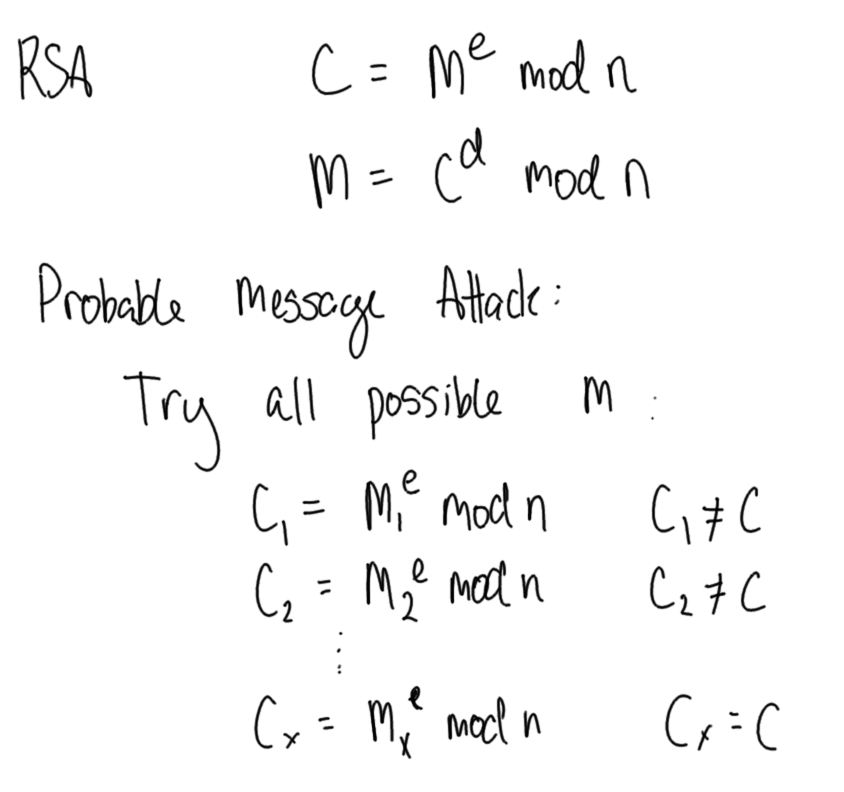 RSA C = M^e mod n
M = C^d mod n
Probable Message Attack:
Try all possible M :
C₁ = M₁^e mod n C₁ ≠ C
C₂ = M₂^e mod n C₂ ≠ C
⋮
Cₓ = Mₓ^e mod n Cₓ = C